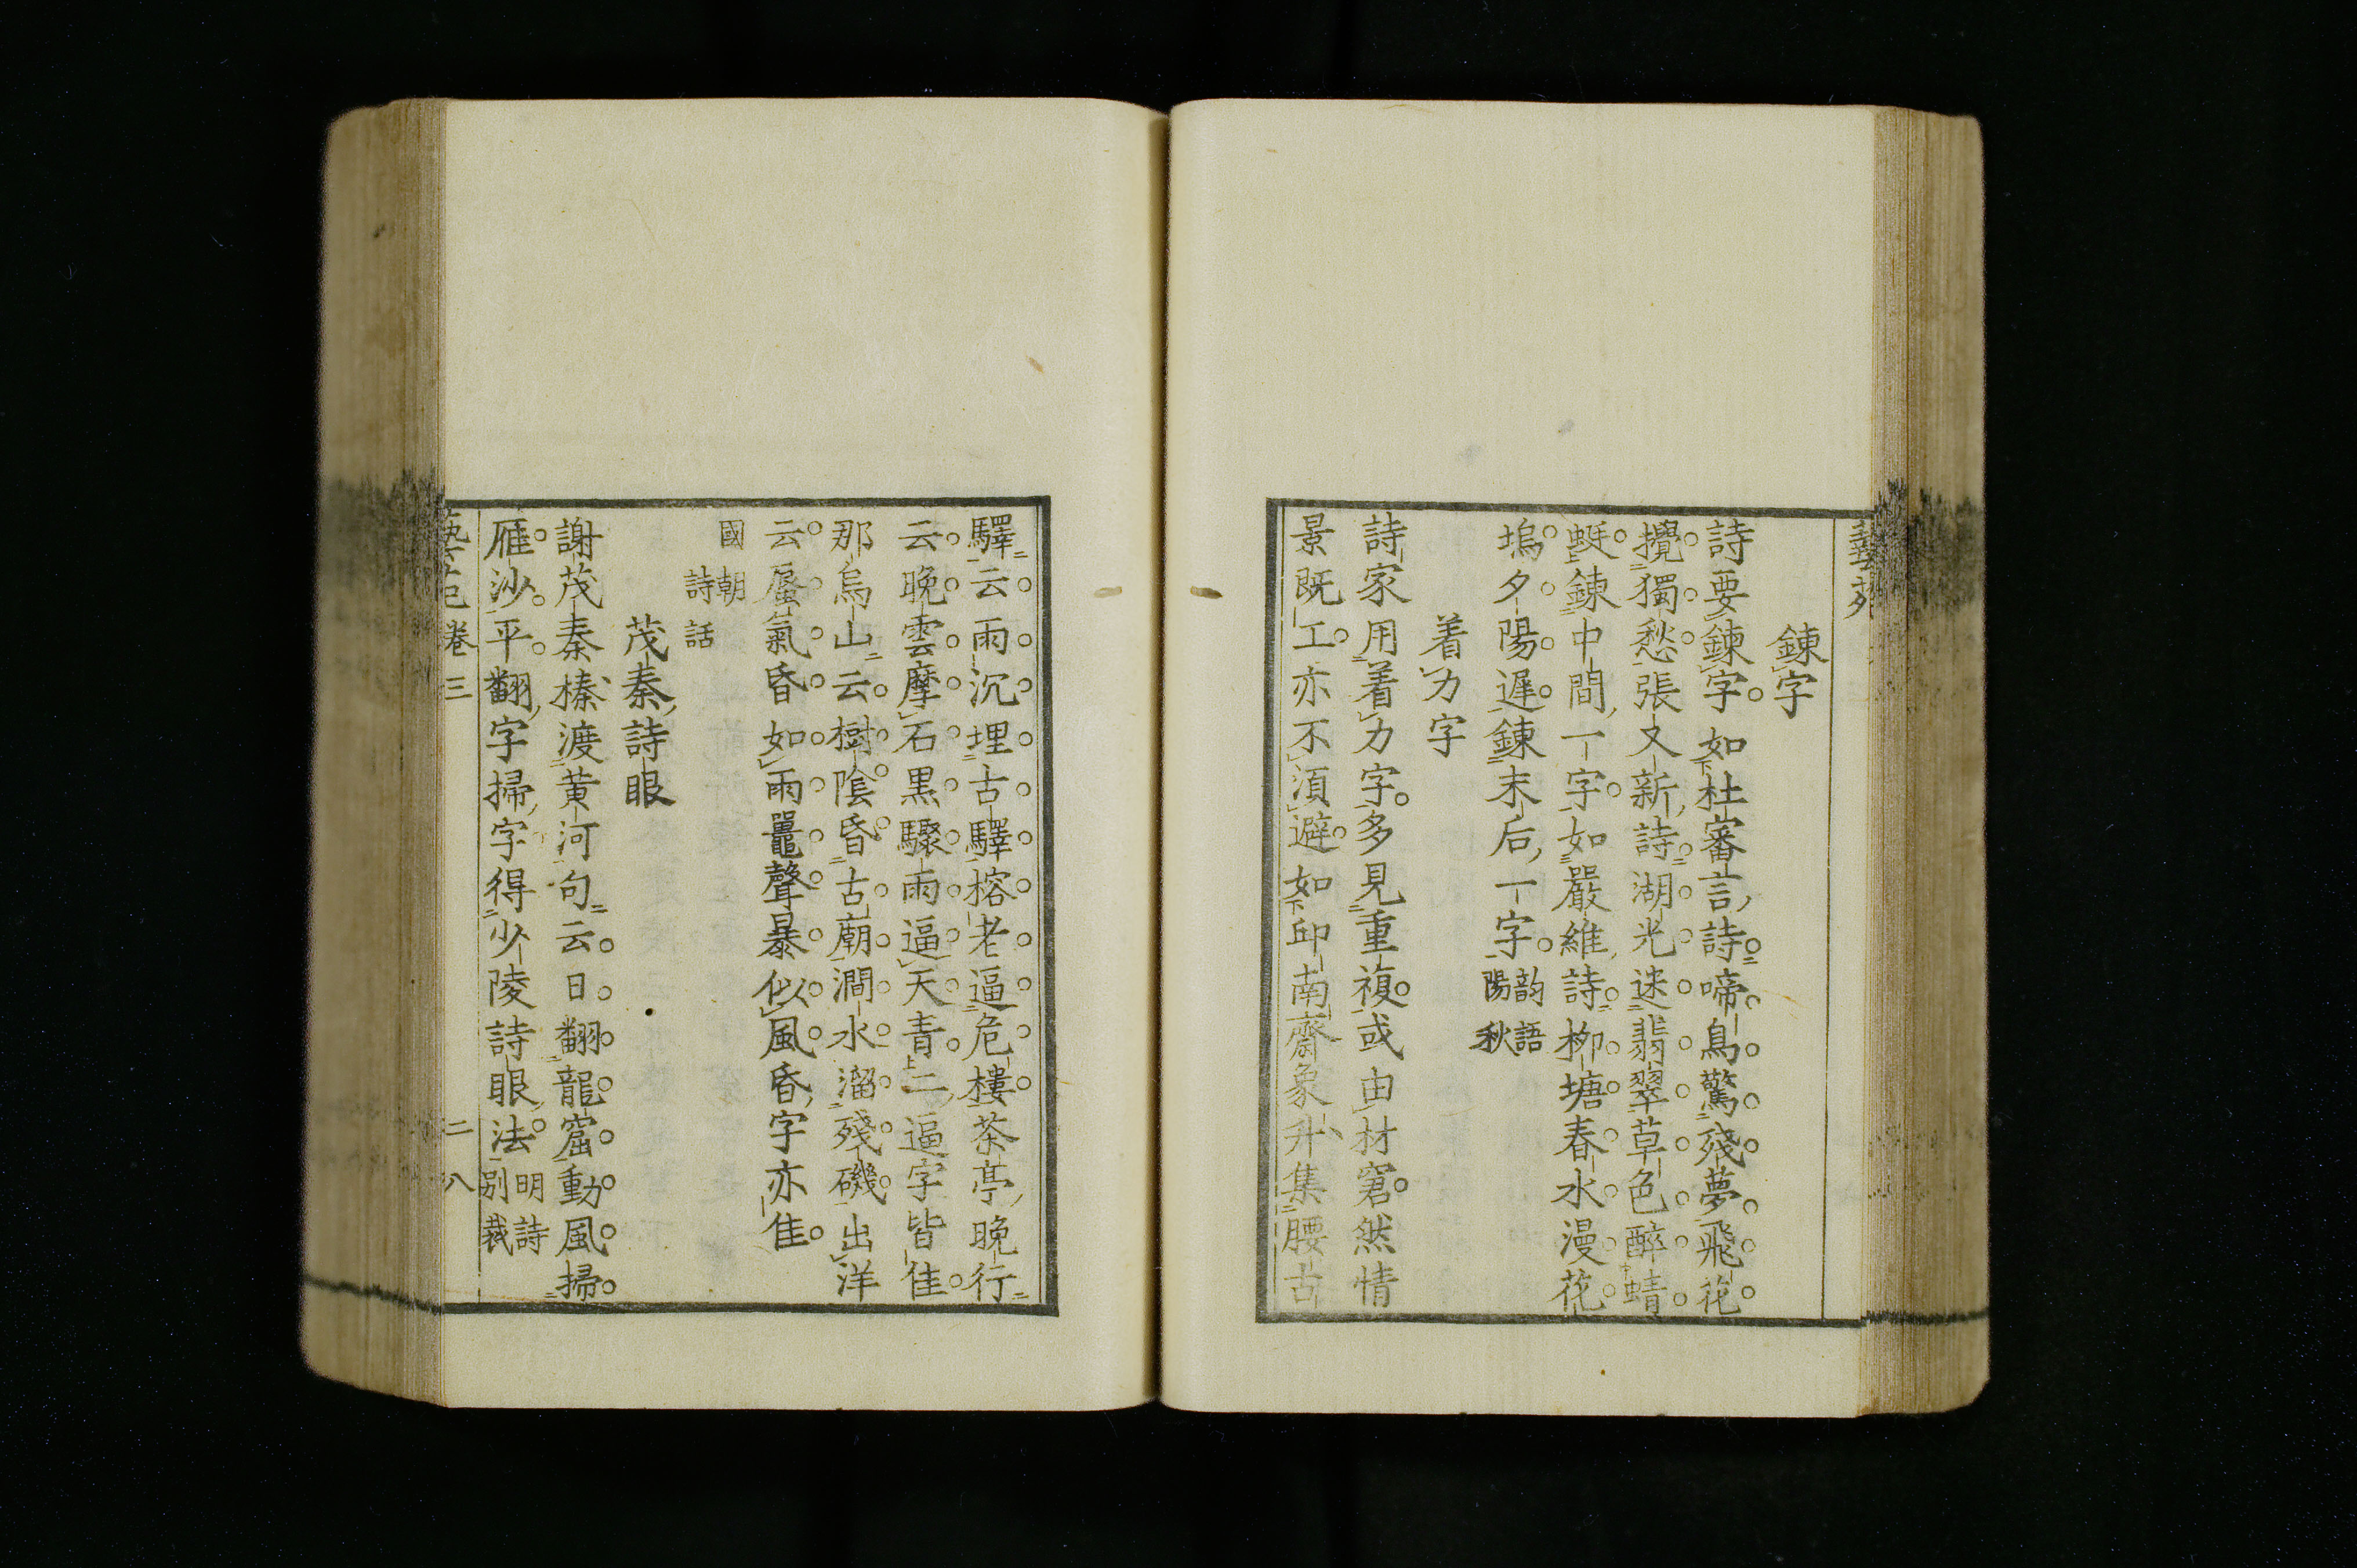 鍊字
詩要鍊字如杜審言詩啼鳥驚殘夢飛花
攪獨愁張又新詩湖光迷翡翠草色醉蜻
蜓鍊中間一字如嚴維詩柳塘春水漫花
塢夕陽遲鍊末后一字
韵語
陽秋
着力字
詩家用着力字多見重複或由材窘然情
景既工亦不須避如邱南齋象升集腰古
驛云雨沉埋古驛榕老逼危樓茶亭晚行
云晚雲摩石黒驟雨逼天青二逼字皆佳
那烏山云樹陰昏古廟澗水溜殘磯出洋
云蜃氣昏如雨鼉聲暴似風昏字亦佳
國朝
詩話
茂秦詩眼
謝茂秦榛渡黄河句云日翻龍窟動風掃
雁沙平翻字掃字得少陵詩眼法
明詩
別裁
卷三
二八